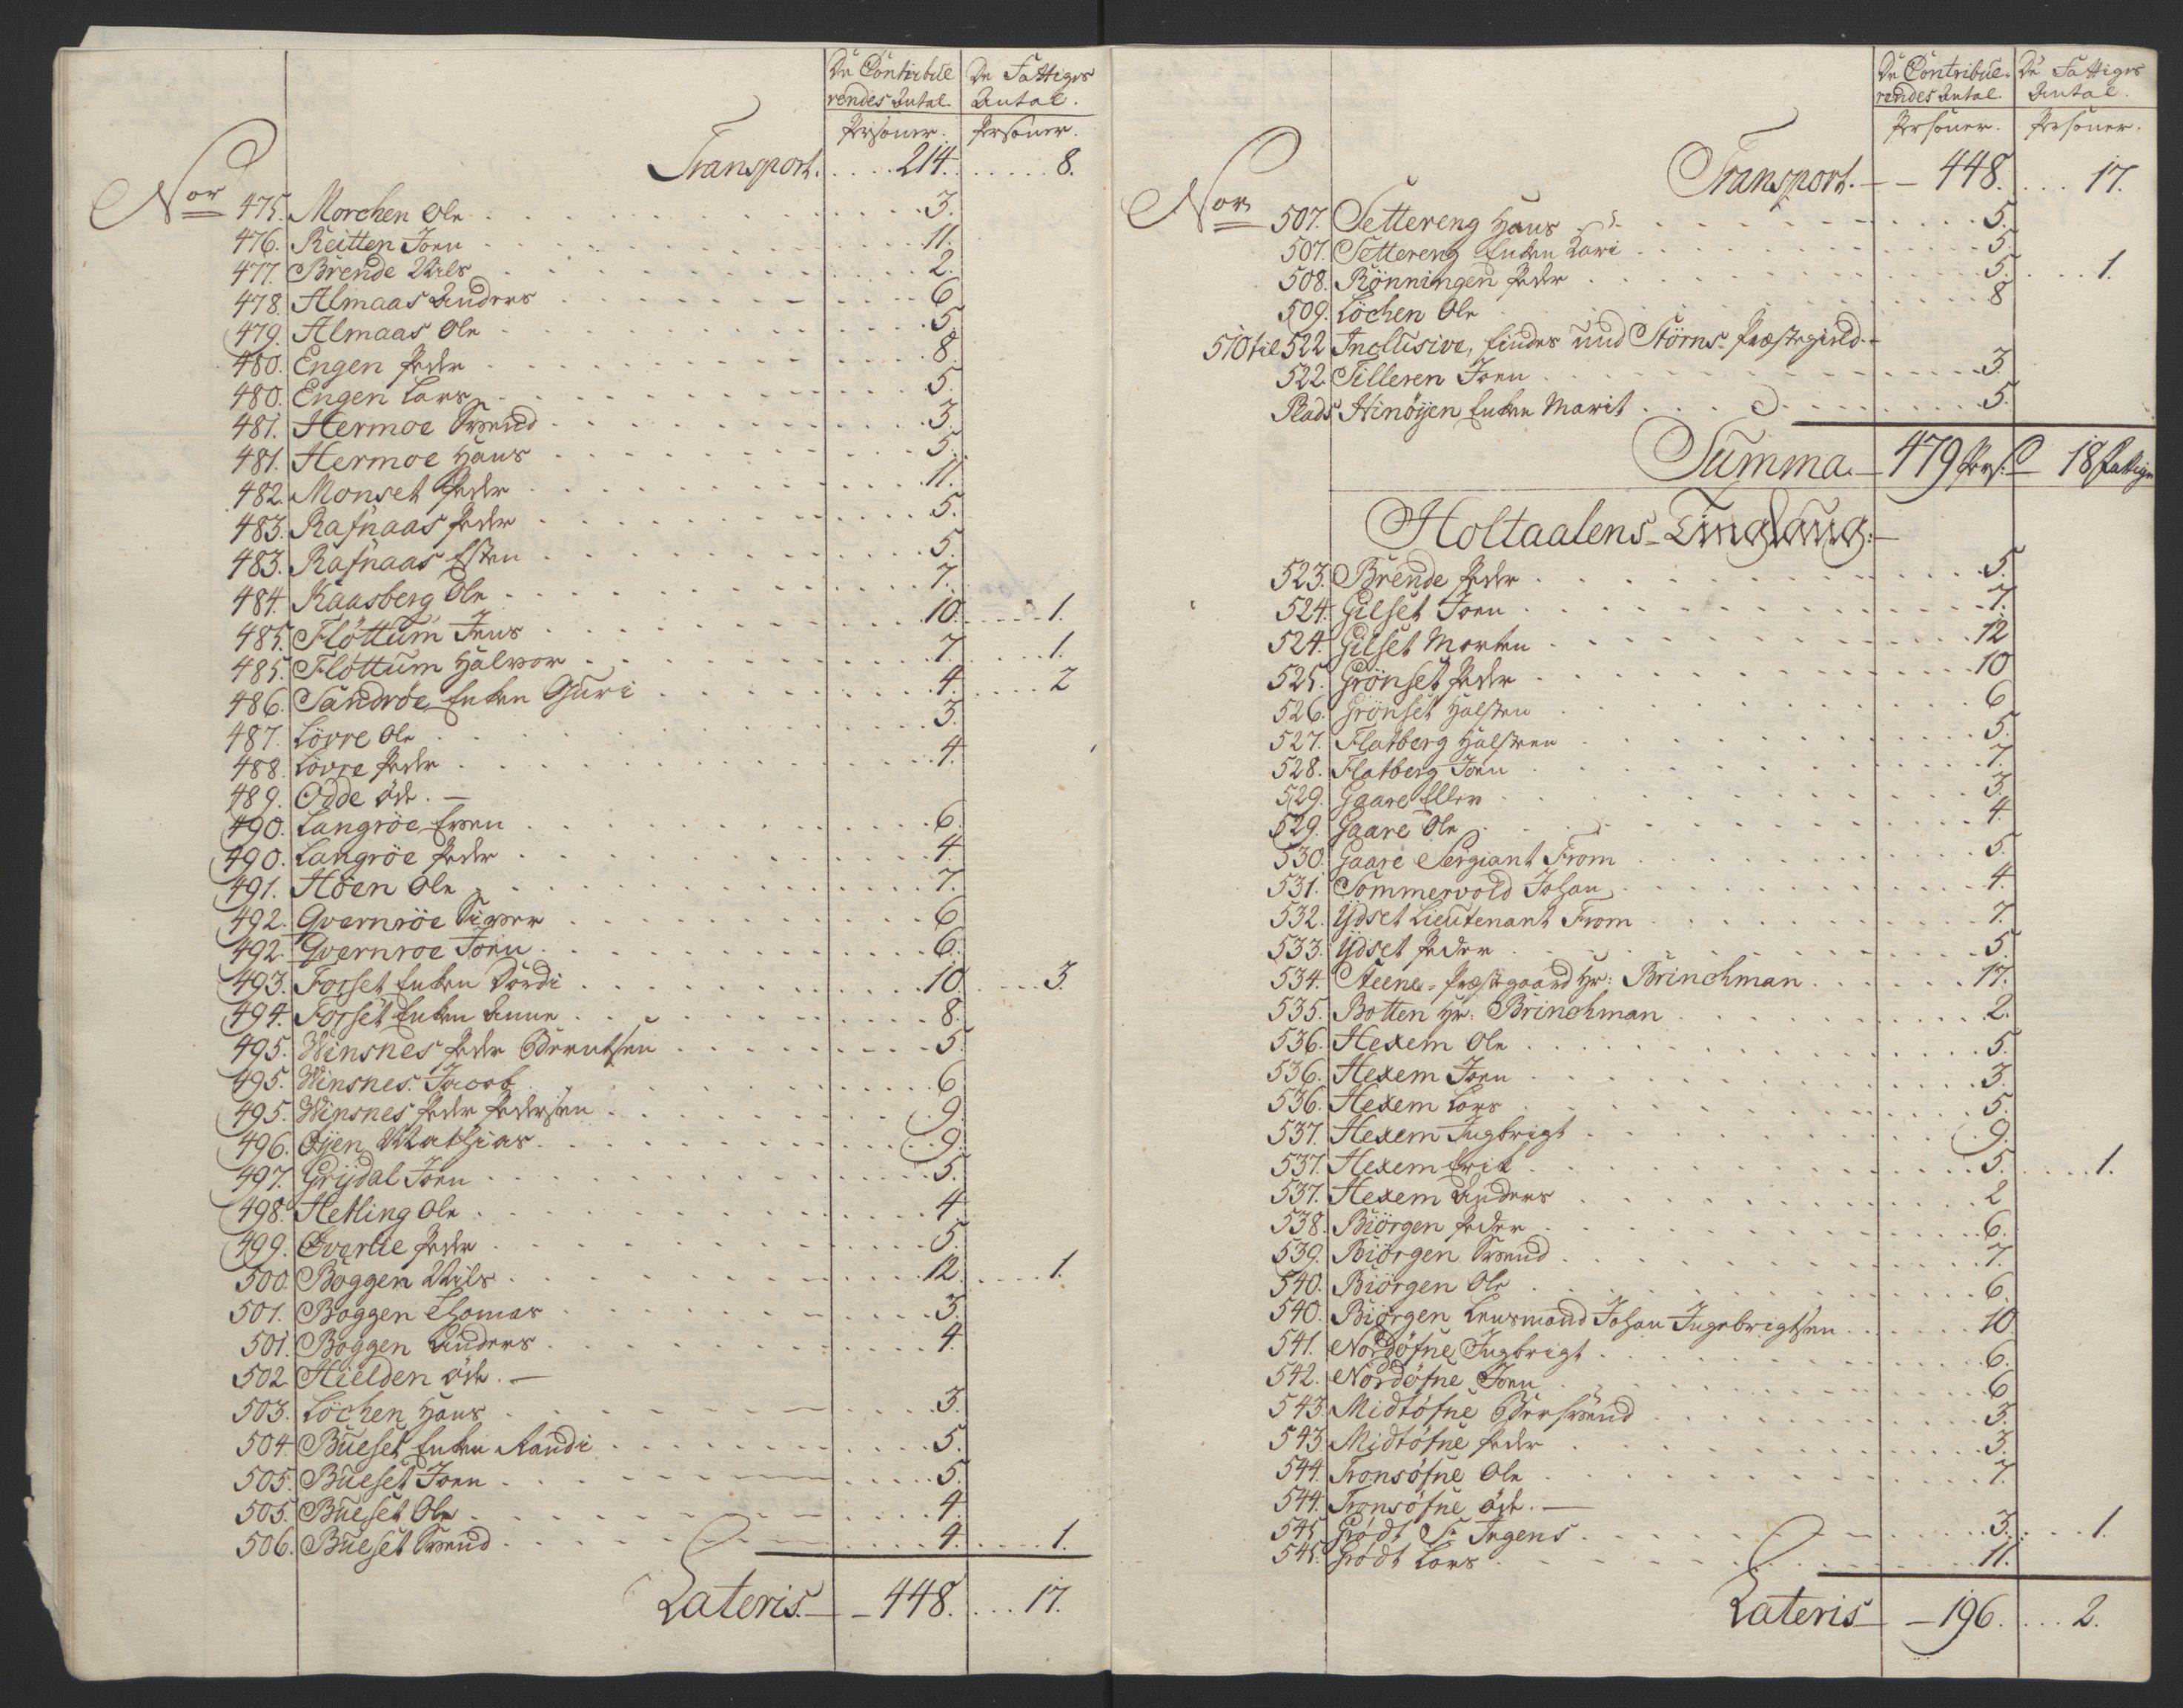 De Contribue De Fattiges
rendes Antal. Antal.
Personer. Personer.
Transport. 214. 8.
Nor
475. Morchen Ole 3.
476. Reitten Joen 11.
477. Brende Nils 2.
478. Almaas Anders 6
479. Almaas Ole 5.
480. Engen Peder 8.
480. Engen Lars 5.
481. Hermoe Svend 3.
481. Hermoe Hans 5.
482. Monset Peder 11.
483. Rafnaas Peder 5.
483. Rafnaas Esten 5.
484. Kaasberg Ole 7.
485. Fløttum Jens 10. 1.
485. Fløttum Halvor 7. 1.
486. Sandrøe Enken Guri 4. 2
487. Løvre Ole 3.
488. Løvre Peder 4.
489. Odde øde. —
490. Langrøe Even 6.
490. Langrøe Peder 4.
491. Høen Ole 7.
492. Qvernrøe Siver 6
492. Qvernroe Joen 6.
493. Forset Enken Dordi 10. 3.
494. Forset Enken Anne 8.
495. Winsnes Peder Berntsen 5.
495. Winsnes Jacob 6
495. Winsnes Peder Pedersen 9.
496. Øyen Mathias 9.
497. Grydal Joen 5.
498. Hetling Ole 4
499. Qverlie Peder 5.
500. Boggen Nils 12. 1.
501. Boggen Thomas 3.
501. Boggen Anders 4.
502. Hielden øde. —
503. Løchen Hans 3.
504 Bueset Enken Randi 5.
505. Bueset Joen 5.
505. Bueset Ole 4.
506. Bueset Svend 4. 1.
Lateris — 448. 17.
De Contribue- De Fattiges
rendes Antal. Antal.
Personer. Personer.
Transport. — 448. 17.
Nor
507. Settereng Hans 5.
507. Settereng Enken Kari 5.
508. Rønningen Peder 5. 1.
509. Løchen Ole 8
510 til 522 Inclusive, findes und Størns Præstegield.
522. Tilleren Joen 3.
Plads Hinøyen Enken Marit 5.
Summa. — 479 Pers: 18 Fattige
Holtaalens Tinglaug: —
523. Brende Peder 5.
524. Gilset Joen 7.
524. Gilset Morten 12
525. Grønset Peder 10
526. Grønset Halsten 6
527. Flatberg Halsten 5.
528. Flatberg Joen 7.
529. Gaare Ellev 3.
529. Gaare Ole 4
530. Gaare Sergiant From 5.
531. Sommervold Johan 4.
532. Ydset Lieutenant From 7.
533. Ydset Peder 5.
534. Aeene-Præstegaard Hr: Brinchman 17.
535. Botten Hr: Brinchman 2.
536. Hexem Ole 5.
536. Hexem Joen 3.
536. Hexem Lars 5.
537. Hexem Ingbrigt 9.
537. Hexem Erik 5. 1.
537. Hexem Anders 2
538. Biörgen Peder 6.
539. Biörgen Svend 7.
540. Biörgen Ole 6.
540. Biörgen Lensmand Johan Ingebrigtsen 10.
541. Nordøfne Ingbrigt 6.
542. Nordøfne Joen 6
543. Midtøfne Bersvend 3.
543. Midtøfne Peder 3.
544. Tronsøfne Ole 7.
544. Tronsøfne øde. —
545. Grødt Sr Irgens 3. 1.
545. Grødt Lars 11.
Lateris — 196. 2.